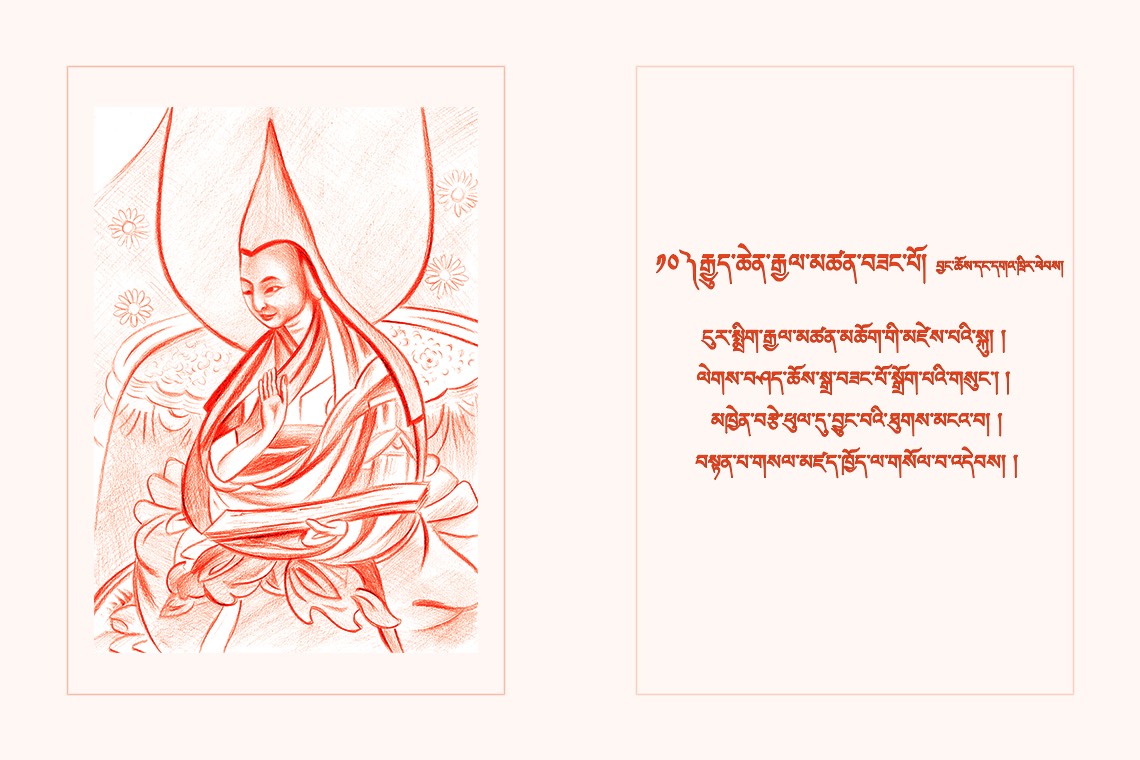 ༡༠ ༽རྒྱུད་ཆེན་རྒྱལ་མཚན་བཟང་པོ། བྱང་ཆོས་དང་དགའ་ཁྲིར་ཕེབས།
ངུར་སྨྲིག་རྒྱལ་མཚན་མཆོག་གི་མཛེས་པའི་སྐུ། །
ལེགས་བཤད་ཆོས་སྒྲ་བཟང་པོ་སྒྲོག་པའི་གསུང་། །
མཁྱེན་བརྩེ་ཕུལ་དུ་བྱུང་བའི་ཐུགས་མངའ་བ། །
བསྟན་པ་གསལ་མཛད་ཁྱོད་ལ་གསོལ་བ་འདེབས། །